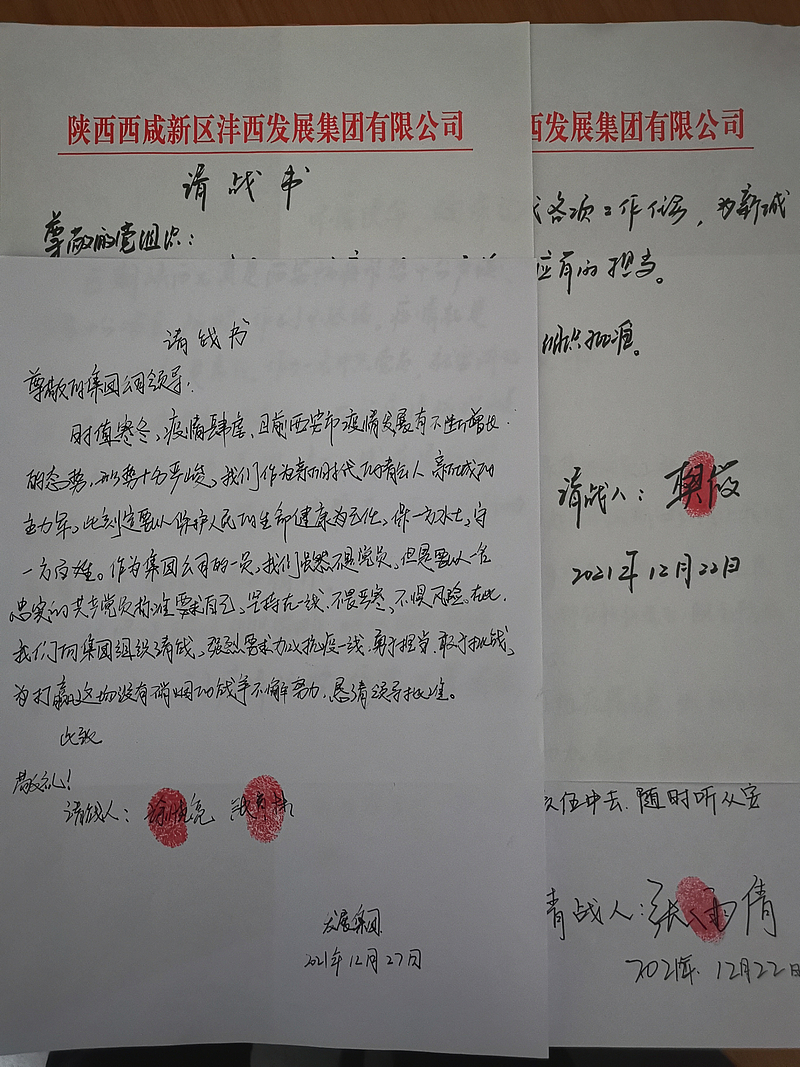 陕西西咸新区沣西发展集团有限公司
请战书
尊敬的党组织：
请战书
尊敬的集团公司领导：
时值寒冬，疫情肆虐，目前西安市疫情发展有不断增长
的态势，形势十分严峻，我们作为新时代的青年人 新城的
主力军，此刻定要以保护人民的生命健康为己任，保一方水土，守
一方百姓。作为集团公司的一员，我们虽然不是党员，但是要以一名
忠实的共产党员标准要求自己，坚持在一线、不畏严寒、不惧风险。在此，
我们向集团组织请战，强烈要求加入抗疫一线，勇于担当，敢于挑战，
为打赢这场没有硝烟的战争不懈努力，恳请领导批准。
此致
敬礼！
请战人：
发展集团
2021年12月27日
西发展集团有限公司
各项工作任务，为新城
应有的担当。
组织批准。
请战人：樊薇
2021年12月22日
队伍中去，随时听从安
请战人：张雨倩
2021年12月22日